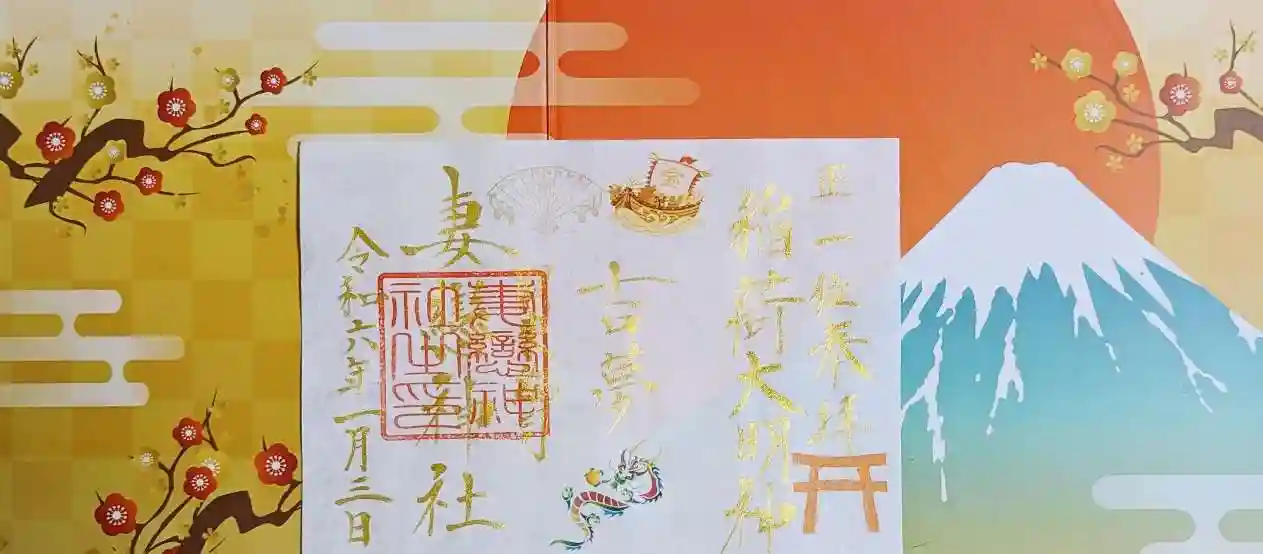 正一位奉拝
稲荷大明神
吉夢
妻戀神社
妻戀神
社之印
令和六年一月三日